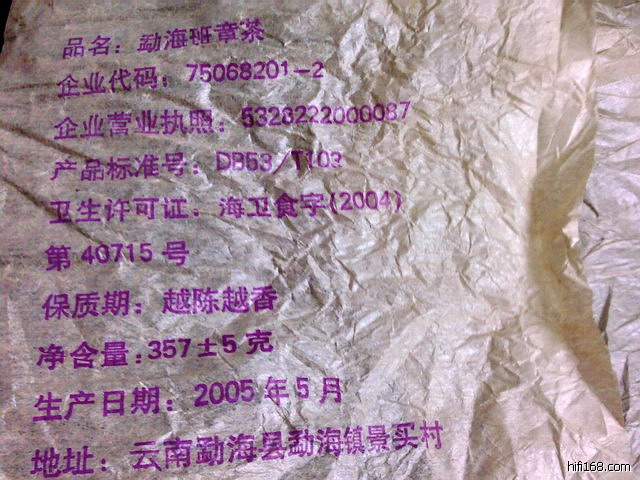 品名：勐海班章茶
企业代码：75068201-2
企业营业执照：5328222000087
产品标准号：DB53/T103
卫生许可证：海卫食字(2004)
第 40715 号
保质期：越陈越香
净含量：357±5 克
生产日期：2005 年 5 月
地址：云南勐海县勐海镇景买村
hifi168.com